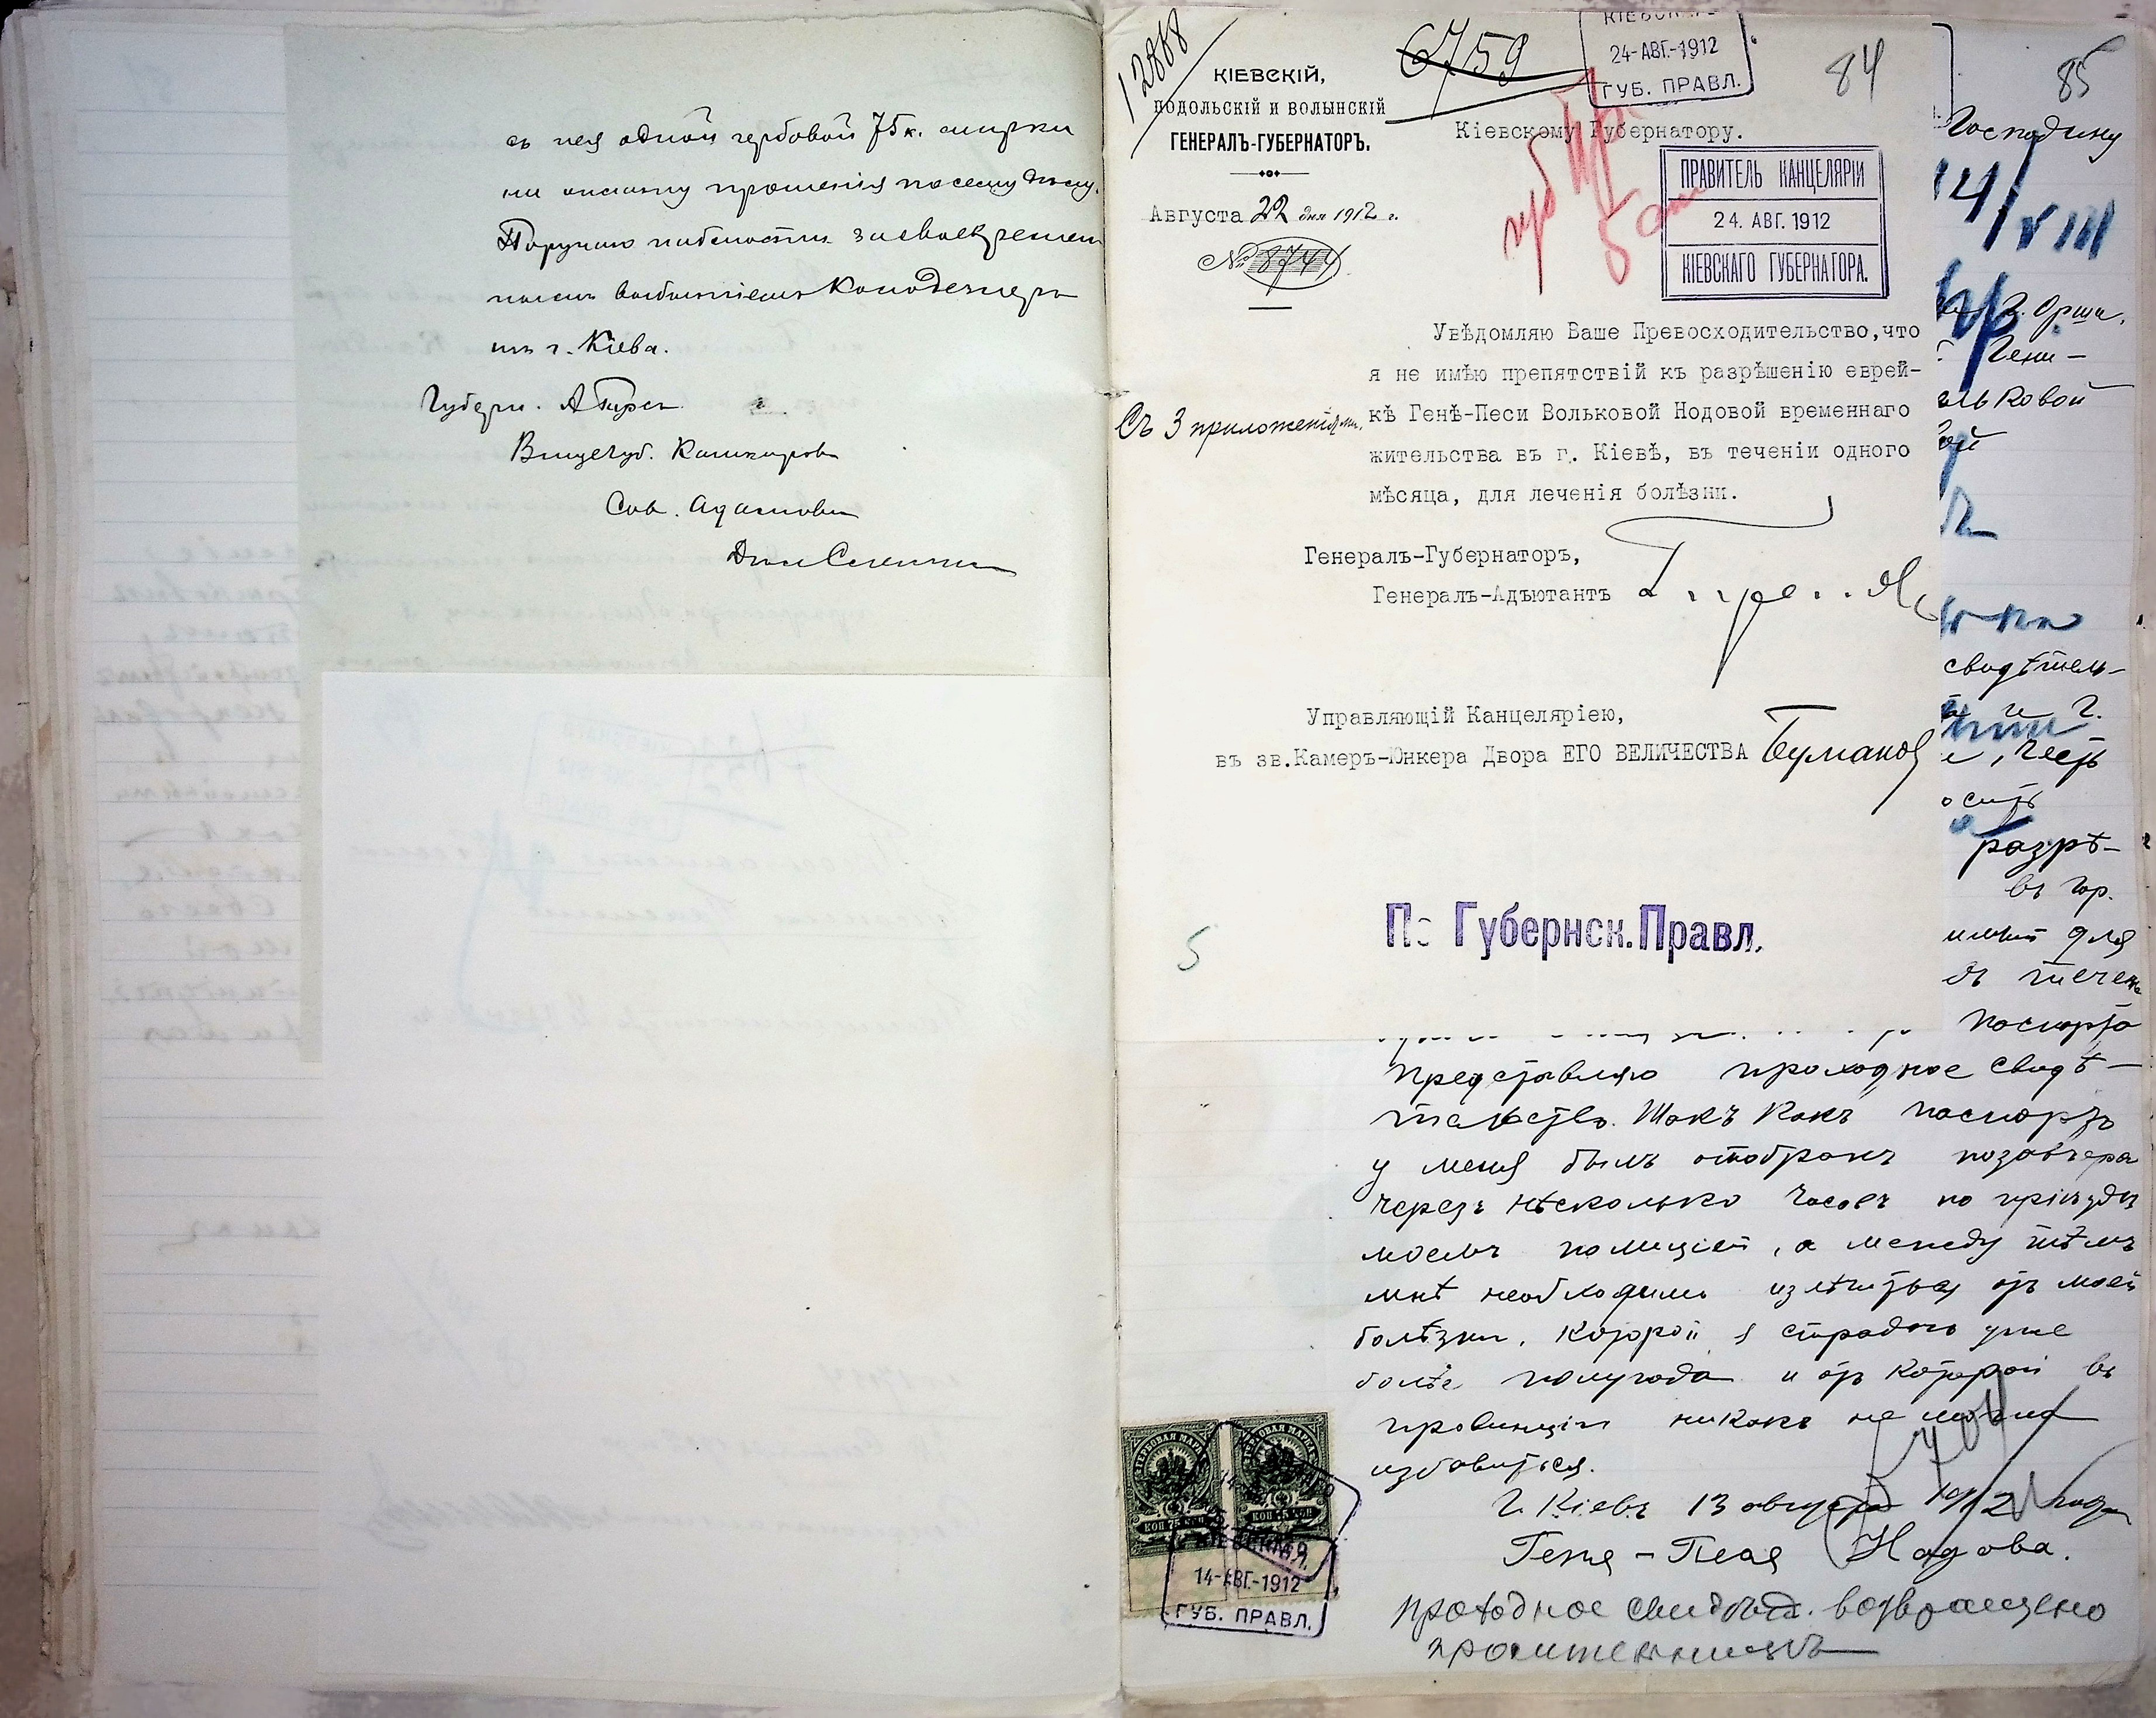 съ нея одной гербовой 75 к. марки
на оплату прошенія по сему дѣлу.
Поручаю
г. Кіева.
Губерн. А Гирсъ
Вицегуб. Кашкаровъ
Сов. Адамовичъ
12868
КІЕВСКІЙ,
ПОДОЛЬСКІЙ И ВОЛЫНСКІЙ
ГЕНЕРАЛЪ-ГУБЕРНАТОРЪ.
Августа 22 дня 1912 г.
№ 8744
Съ 3 приложеніями.
6759
24-АВГ.-1912
ГУБ. ПРАВЛ.
84
Кіевскому Губернатору.
ПРАВИТЕЛЬ КАНЦЕЛЯРІИ
24. АВГ. 1912
КІЕВСКАГО ГУБЕРНАТОРА.
Увѣдомляю Ваше Превосходительство, что
я не имѣю препятствій къ разрѣшенію еврей-
кѣ Генѣ-Песи Вольковой Нодовой временнаго
жительства въ г. Кіевѣ, въ теченіи одного
мѣсяца, для леченія болѣзни.
Генералъ-Губернаторъ,
Генералъ-Адъютантъ
Управляющій Канцеляріею,
въ зв.Камеръ-Юнкера Двора ЕГО ВЕЛИЧЕСТВА
По Губернск.Правл.
5
85
Господину
14/VIII
г. Орши,
Гени-
льковой
свидѣтель-
и г.
, честь
осить
разрѣ-
въ гор.
для
въ течен
паспорта
представляю проходное свидѣ-
тельство. Такъ какъ паспортъ
у меня былъ отобранъ позавчера
черезъ нѣсколько часовъ по пріѣздѣ
моемъ полиціей, а между тѣмъ
мнѣ необходимо излѣчиться отъ моей
болѣзни, которой я страдаю уже
болѣе полугода и отъ которой въ
провинціи никакъ не можно
избавиться.
Г. Кіевъ 13 августа 1912 года
Геня-Песя Надова.
проходное свидѣт. возвращено
просительницѣ
ГЕРБОВАЯ МАРКА
ГЕРБОВАЯ МАРКА
КОП 75 КОП
КОП 75 КОП
КІЕВСКАГО
14-АВГ.-1912
ГУБ. ПРАВЛ.